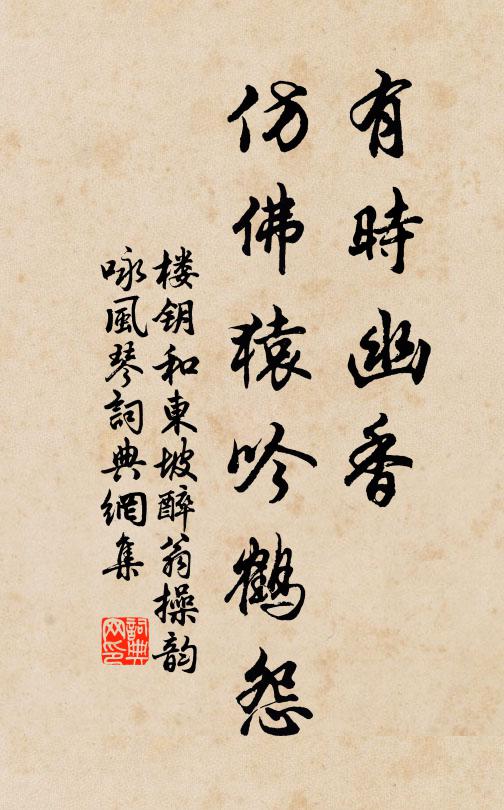 有時幽香
仿佛猿吟鶴怨
楼钥和東坡醉翁操韵
咏風琴詞典網集
詞典网印